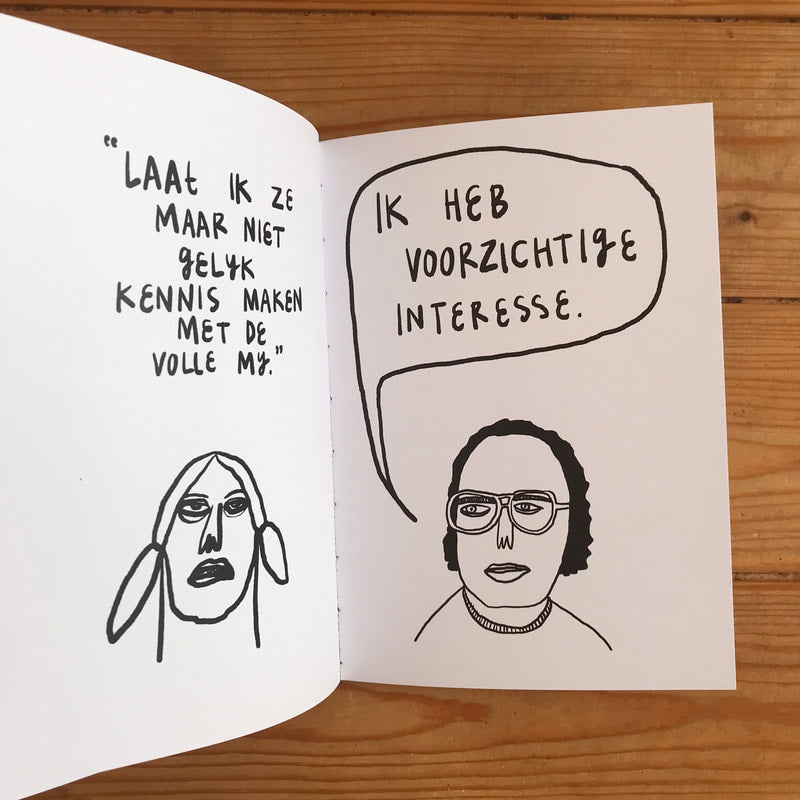 "LAAt IK ZE
MAAR NIET
gELYK
KENNIS MAKEN
MET DE
VOLLE MY."
IK HEB
VOORZICHTIgE
INTERESSE.